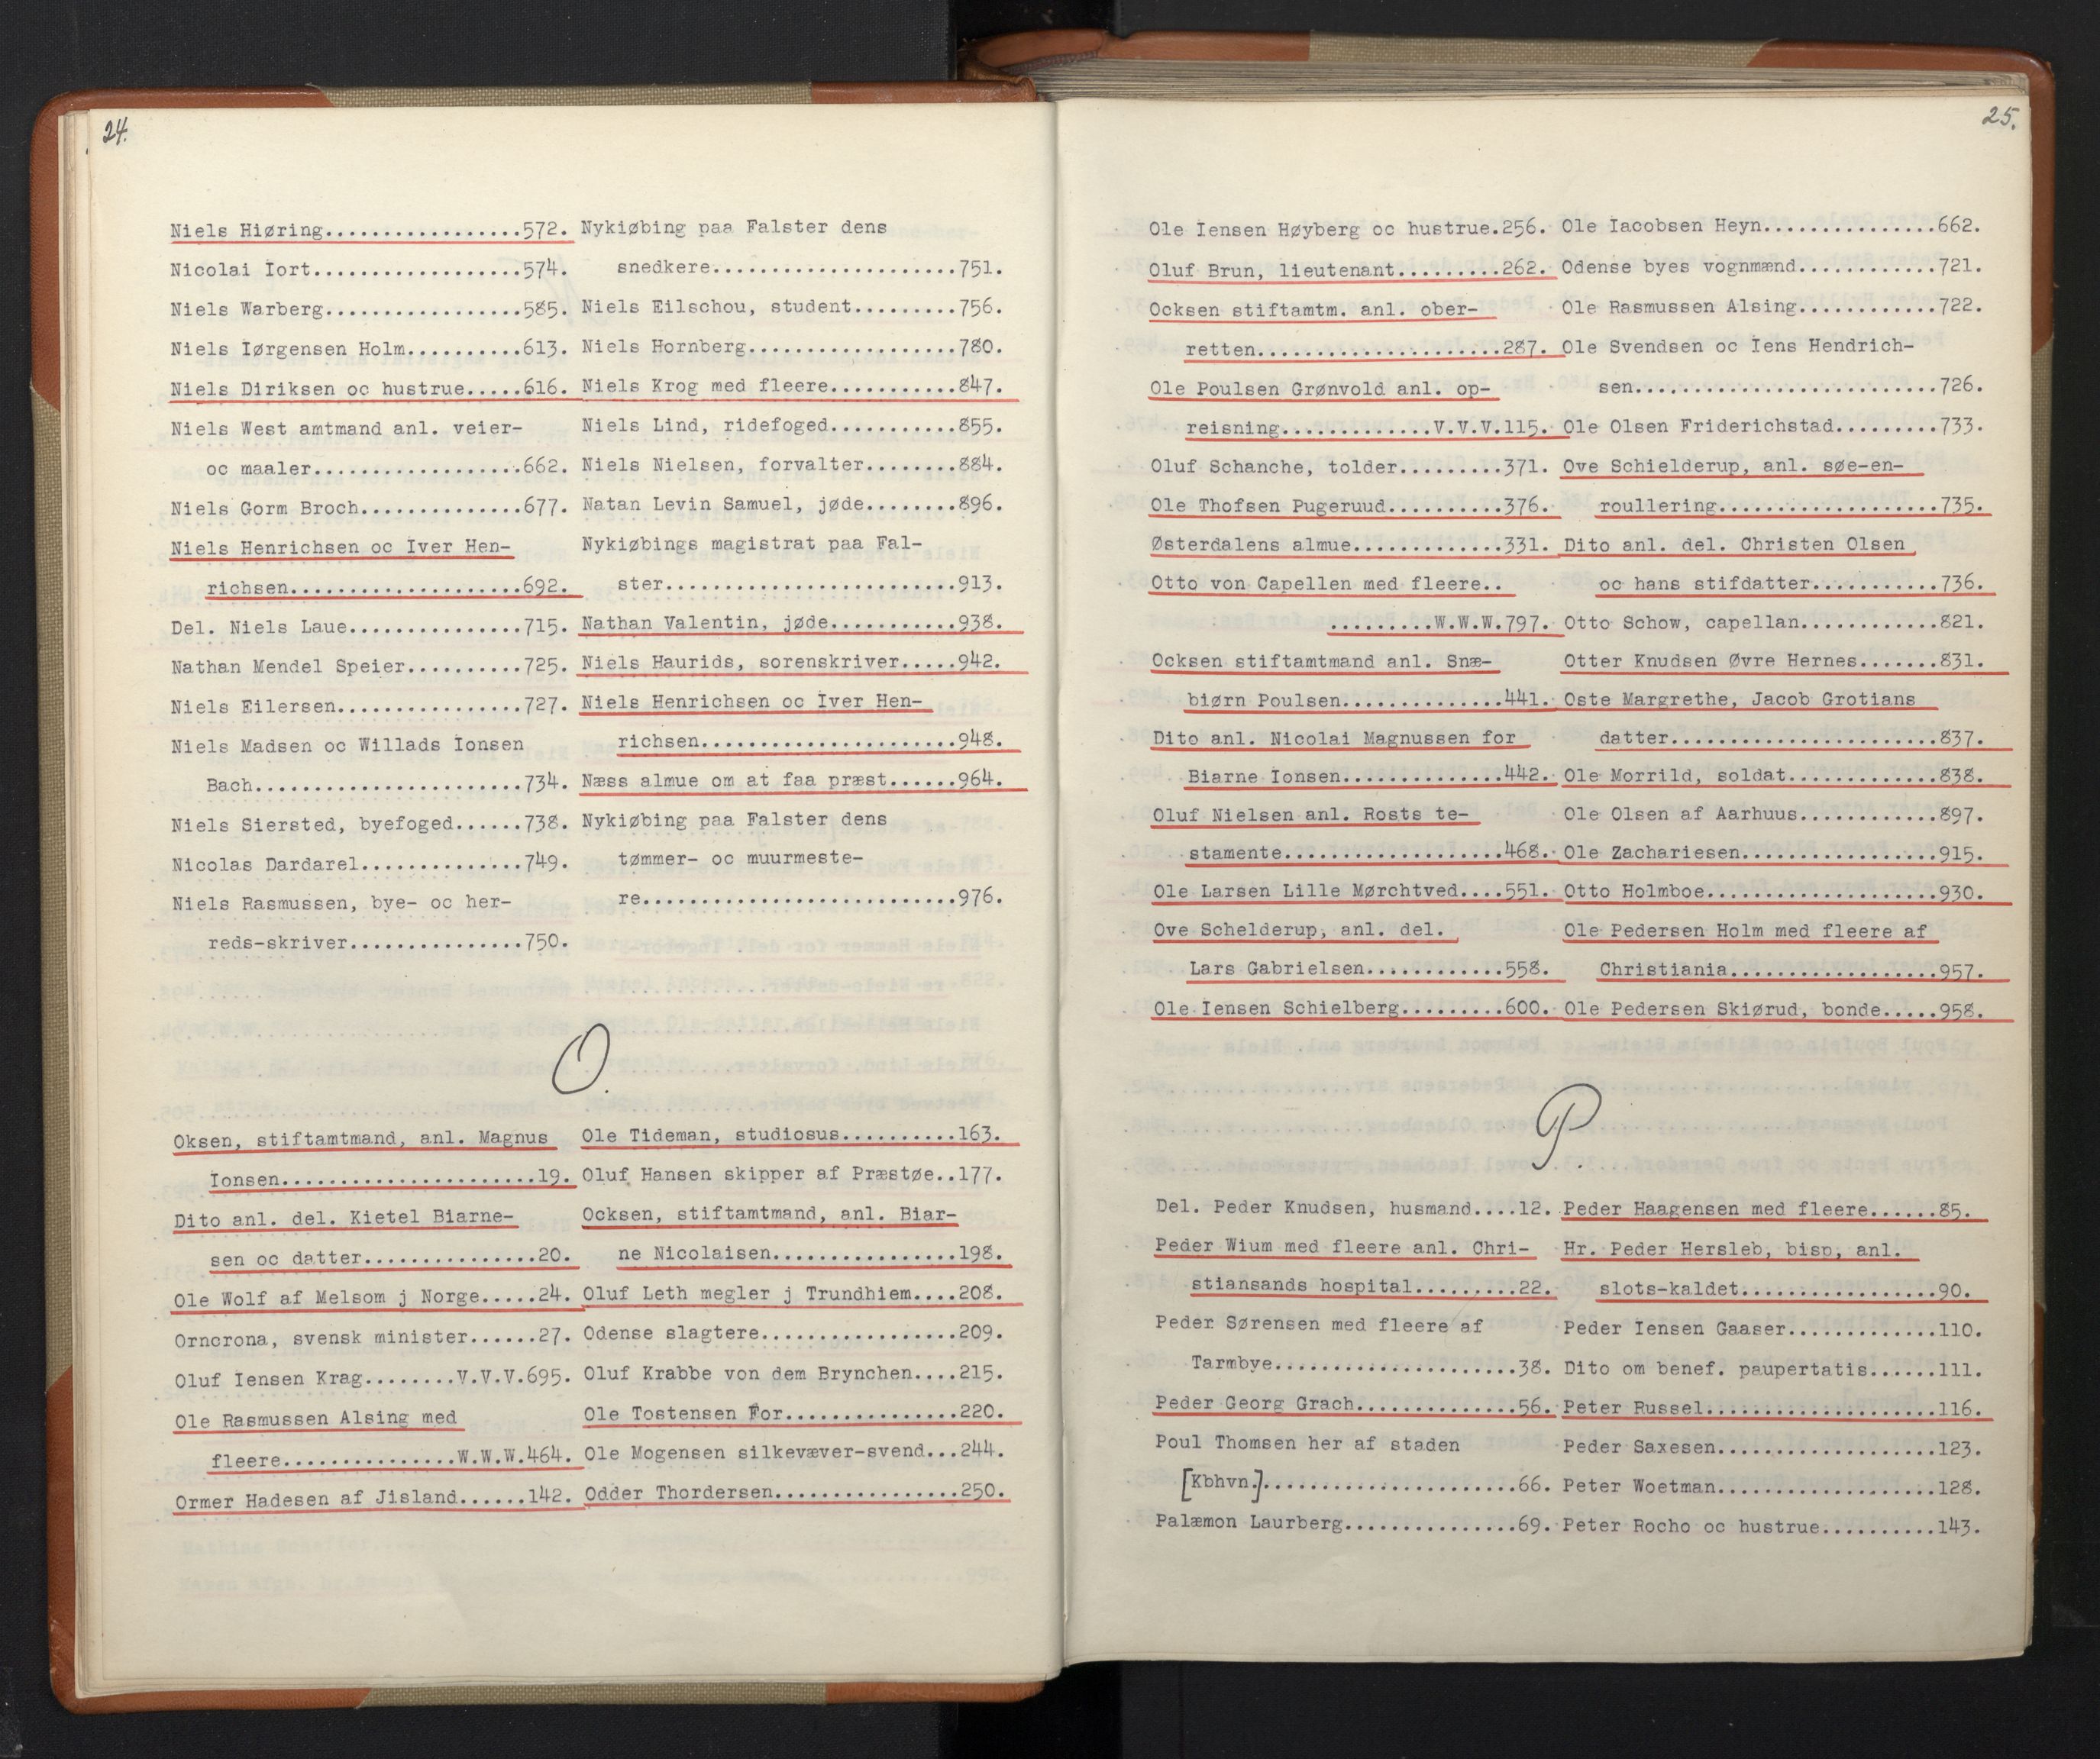 24.
Niels Hiøring..................572.
Nicolai Iort...................574.
Niels Warberg..................585.
Niels Iørgensen Holm...........613.
Niels Diriksen oc hustrue.....616.
Niels West amtmand anl. veier-
oc maaler...................662.
Niels Gorm Broch...............677.
Niels Henrichsen oc Iver Hen-
richsen.....................692.
Del. Niels Laue................715.
Nathan Mendel Speier...........725.
Niels Eilersen.................727.
Niels Madsen oc Willads Ionsen
Bach........................734.
Niels Siersted, byefoged......738.
Nicolas Dardarel...............749.
Niels Rasmussen, bye- oc her-
reds-skriver................750.
Nykiøbing paa Falster dens
snedkere......................751.
Niels Eilschou, student.........756.
Niels Hornberg...................780.
Niels Krog med fleere............847.
Niels Lind, ridefoged...........855.
Niels Nielsen, forvalter........884.
Natan Levin Samuel, jøde........896.
Nykiøbings magistrat paa Fal-
ster..........................913.
Nathan Valentin, jøde...........938.
Niels Haurids, sorenskriver.....942.
Niels Henrichsen oc Iver Hen-
richsen.......................948.
Næss almue om at faa præst......964.
Nykiøbing paa Falster dens
tømmer- oc muurmeste-
re............................976.
O.
Oksen, stiftamtmand, anl. Magnus
Ionsen.......................19.
Dito anl. del. Kietel Biarne-
sen oc datter................20.
Ole Wolf af Melsom j Norge.....24.
Orncrona, svensk minister......27.
Oluf Iensen Krag........V.V.V.695.
Ole Rasmussen Alsing med
fleere...............W.W.W.464.
Ormer Hadesen af Jisland......142.
Ole Tideman, studiosus..........163.
Oluf Hansen skipper af Præstøe..177.
Ocksen, stiftamtmand, anl. Biar-
ne Nicolaisen.................198.
Oluf Leth megler j Trundhiem....208.
Odense slagtere..................209.
Oluf Krabbe von dem Brynchen....215.
Ole Tostensen For................220.
Ole Mogensen silkevæver-svend...244.
Odder Thordersen.................250.
25.
Ole Iensen Høyberg oc hustrue.256.
Oluf Brun, lieutenant.........262.
Ocksen stiftamtm. anl. ober-
retten......................287.
Ole Poulsen Grønvold anl. op-
reisning.............V.V.V.115.
Oluf Schanche, tolder.........371.
Ole Thofsen Pugeruud...........376.
Østerdalens almue..............331.
Otto von Capellen med fleere..
..........W.W.W.797.
Ocksen stiftamtmand anl. Snæ-
biørn Poulsen...............441.
Dito anl. Nicolai Magnussen for
Biarne Ionsen...............442.
Oluf Nielsen anl. Rosts te-
stamente....................468.
Ole Larsen Lille Mørchtved....551.
Ove Schelderup, anl. del.
Lars Gabrielsen.............558.
Ole Iensen Schielberg.........600.
Ole Iacobsen Heyn...............662.
Odense byes vognmænd............721.
Ole Rasmussen Alsing............722.
Ole Svendsen oc Iens Hendrich-
sen...........................726.
Ole Olsen Friderichstad.........733.
Ove Schielderup, anl. søe-en-
roullering....................735.
Dito anl. del. Christen Olsen
oc hans stifdatter............736.
Otto Schow, capellan............821.
Otter Knudsen Øvre Hernes.......831.
Oste Margrethe, Jacob Grotians
datter........................837.
Ole Morrild, soldat..............838.
Ole Olsen af Aarhuus............897.
Ole Zachariesen..................915.
Otto Holmboe.....................930.
Ole Pedersen Holm med fleere af
Christiania...................957.
Ole Pedersen Skiørud, bonde.....958.
P.
Del. Peder Knudsen, husmand....12.
Peder Wium med fleere anl. Chri-
stiansands hospital..........22.
Peder Sørensen med fleere af
Tarmbye......................38.
Peder Georg Grach...............56.
Poul Thomsen her af staden
[Kbhvn.]......................66.
Palæmon Laurberg................69.
Peder Haagensen med fleere......85.
Hr. Peder Hersleb, bisp, anl.
slots-kaldet..................90.
Peder Iensen Gaaser.............110.
Dito om benef. paupertatis......111.
Peter Russel.....................116.
Peder Saxesen....................123.
Peter Woetman....................128.
Peter Rocho oc hustrue..........143.